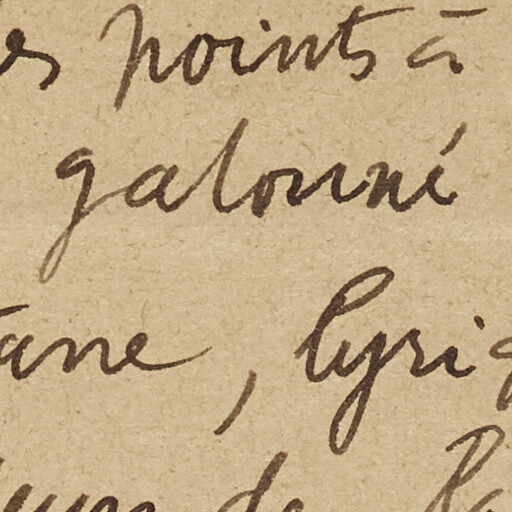 es points à
galonné
tane, lyriq
de